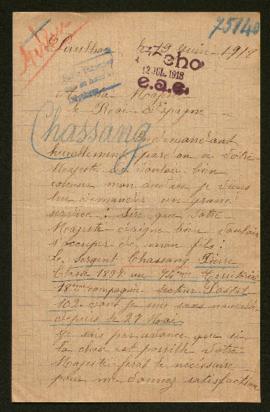 75140
Landos le 29 Juin 1918
12 JUL. 1918
Sa Majesté
le Roi d'Espagne
Chassang
humblement pardon a Votre
Majesté de vouloir bien
mon audace je viens
lui demander un grand
service : Sire que Votre
Majesté daigne bien vouloir
s'occuper de mon fils :
Le Sergent Chassang Pierre
Classe 1898 au Territorial
18me compagnie Secteur Postal
102 dont je suis sans nouvelles
depuis le 27 Mai
Je sais par avance que si
la chose est possible Votre
Majesté fera le nécessaire
pour me donner satisfaction